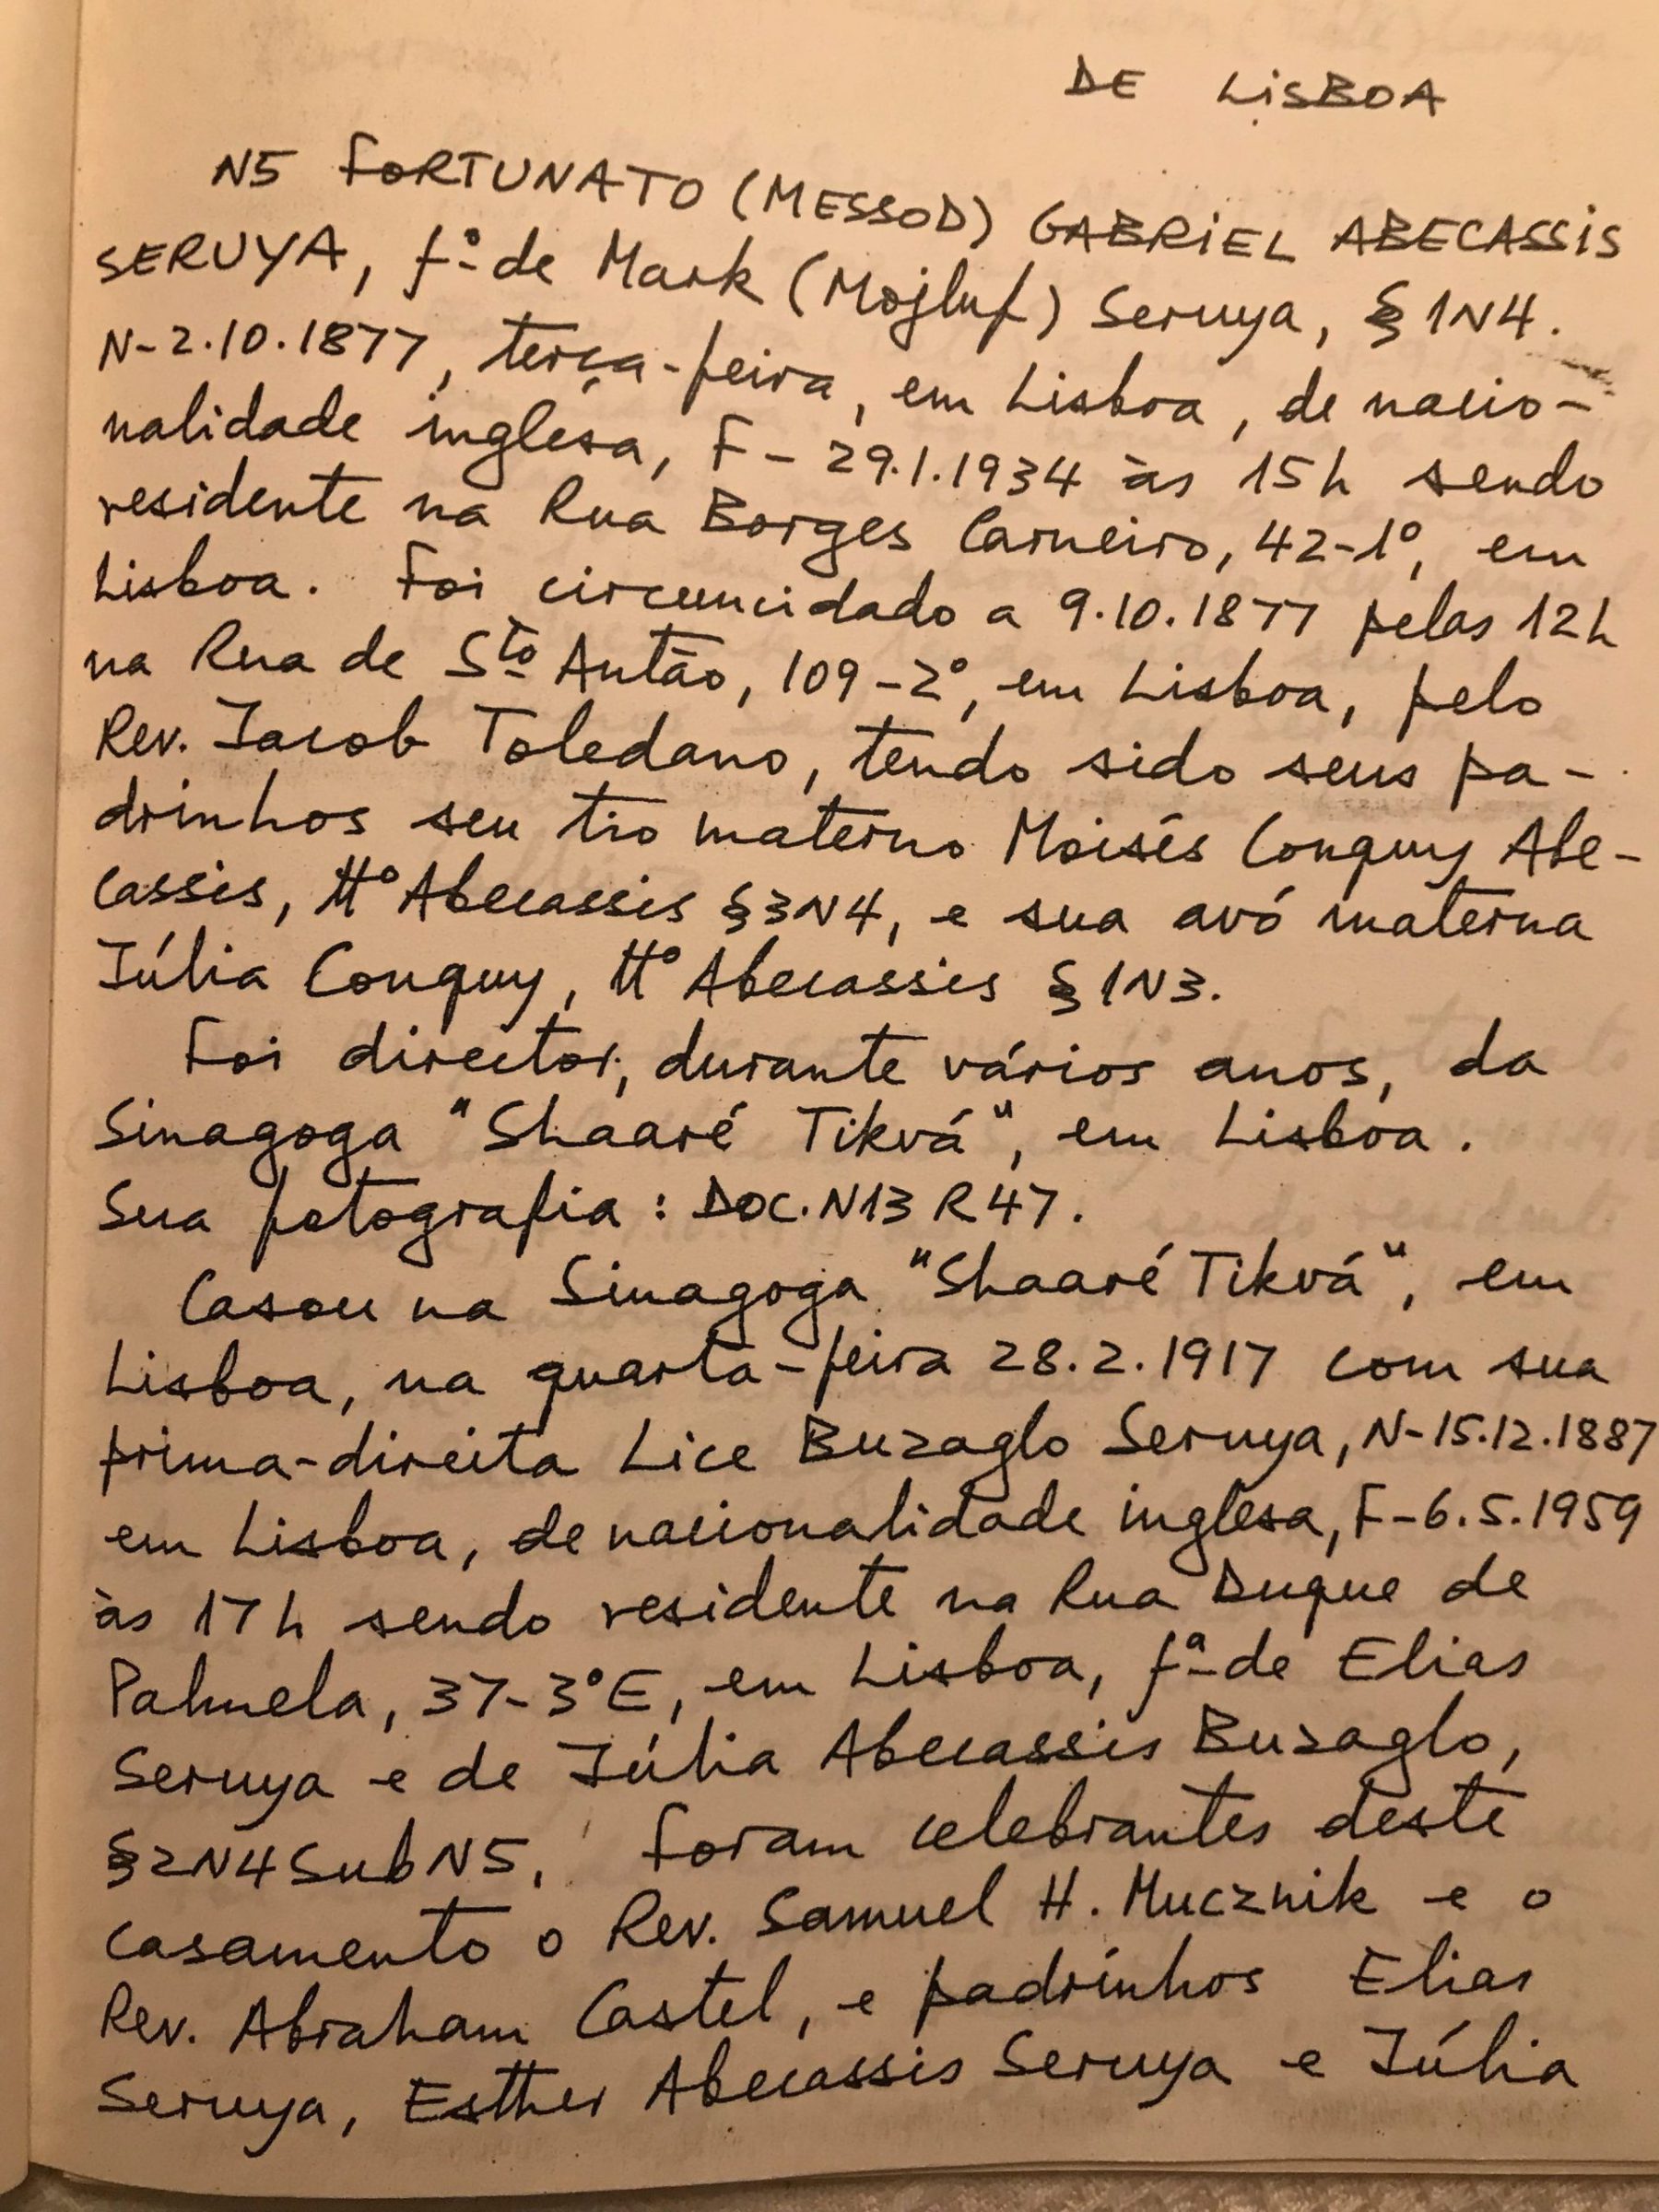 DE LISBOA
N5 FORTUNATO (MESSOD) GABRIEL ABECASSIS
SERUYA, fº de Mark (Mojluf) Seruya, § 1N4.
N-2.10.1877, terça-feira, em Lisboa, de nacio-
nalidade inglesa, F-29.1.1934 às 15h sendo
residente na Rua Borges Carneiro, 42-1º, em
Lisboa. Foi circuncidado a 9.10.1877 pelas 12h
na Rua de Stº Antão, 109-2º, em Lisboa, pelo
Rev. Jacob Toledano, tendo sido seus pa-
drinhos seu tio materno Moisés Conquy Abe-
cassis, ttº Abecassis §3N4, e sua avó materna
Júlia Conquy, ttº Abecassis §1N3.
Foi director, durante vários anos, da
Sinagoga "Shaaré Tikvá", em Lisboa.
Sua fotografia: DOC.N13 R47.
Casou na Sinagoga "Shaaré Tikvá", em
Lisboa, na quarta-feira 28.2.1917 com sua
prima-direita Lice Buzaglo Seruya, N-15.12.1887
em Lisboa, de nacionalidade inglesa, F-6.5.1959
às 17h sendo residente na Rua Duque de
Palmela, 37-3ºE, em Lisboa, fª de Elias
Seruya e de Júlia Abecassis Buzaglo,
§2N4SubN5. Foram celebrantes deste
casamento o Rev. Samuel H. Mucznik e o
Rev. Abraham Castel, e padrinhos Elias
Seruya, Esther Abecassis Seruya e Júlia